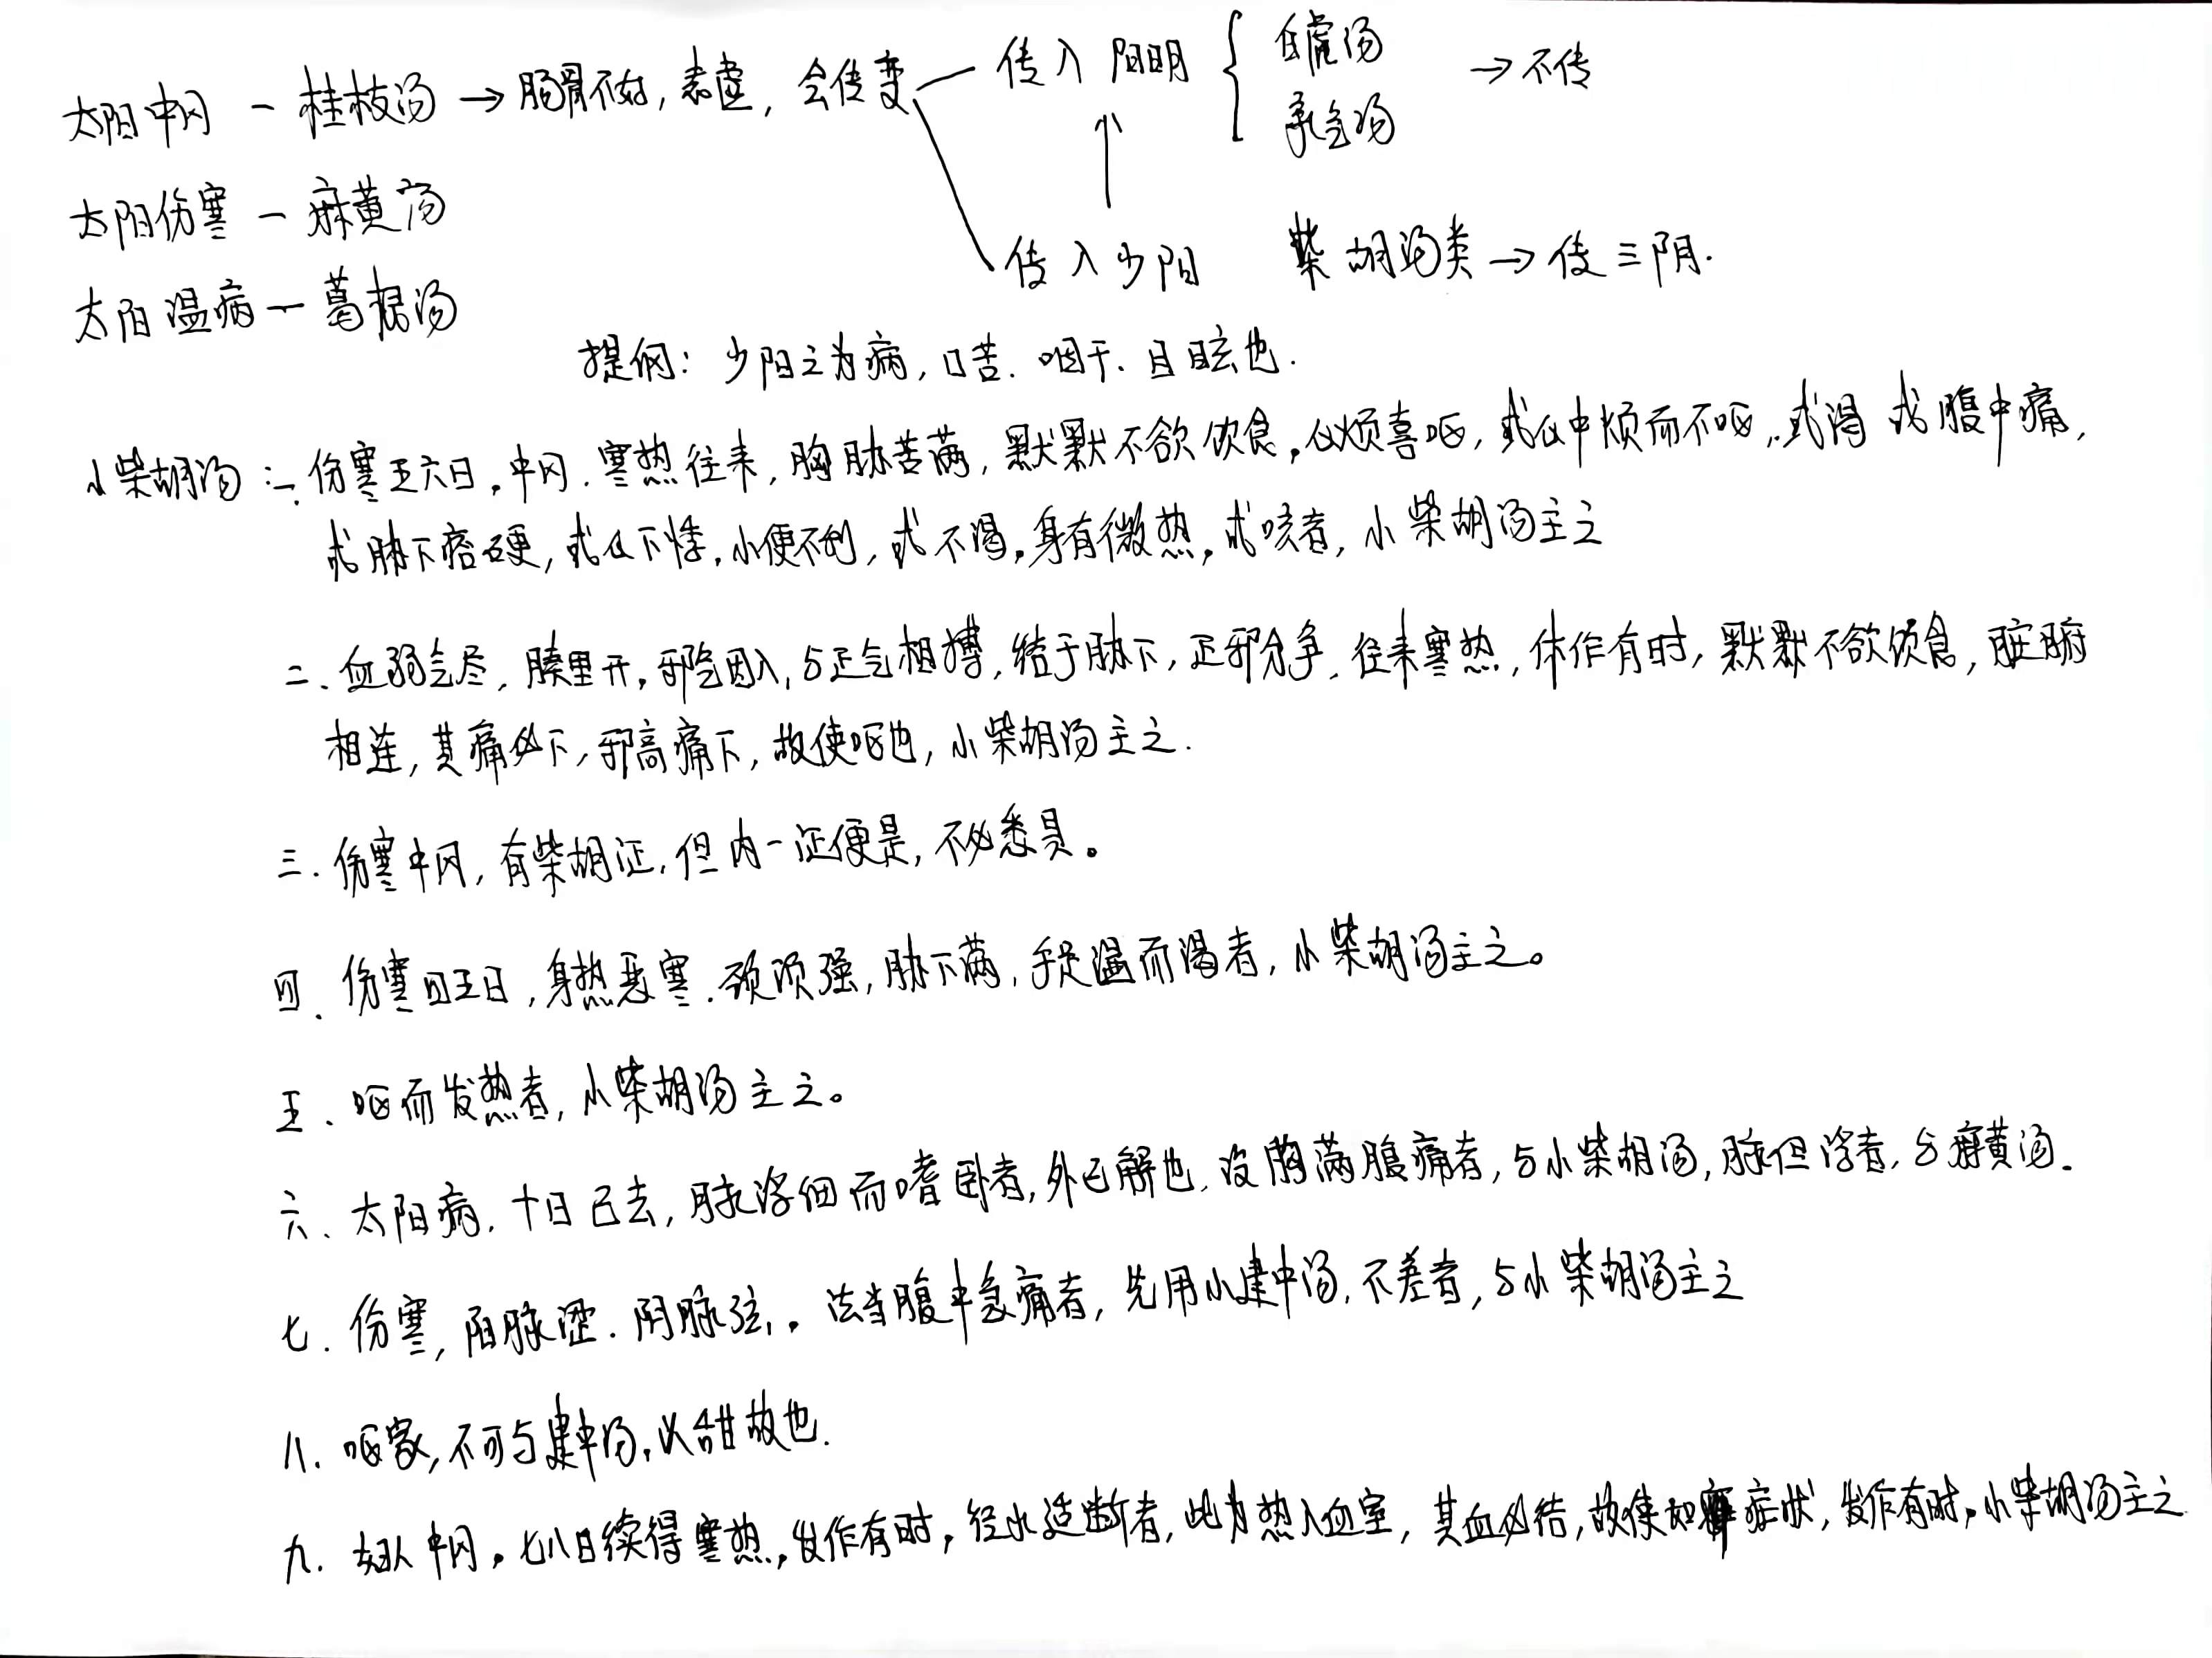 太阳中风 - 桂枝汤 → 肠胃不好, 表虚, 会传变
传入 阳明 { 白虎汤 承气汤 → 不传
太阳伤寒 - 麻黄汤
传入少阳 柴胡汤类 → 传三阴.
太阳温病 - 葛根汤
提纲: 少阳之为病, 口苦. 咽干. 目眩也.
小柴胡汤: 一. 伤寒五六日, 中风. 寒热往来, 胸胁苦满, 默默不欲饮食, 心烦喜呕, 或心中烦而不呕, 或渴 或腹中痛,
或胁下痞硬, 或心下悸, 小便不利, 或不渴, 身有微热, 或咳者, 小柴胡汤主之
二. 血弱气尽, 腠理开, 邪气因入, 与正气相搏, 结于胁下, 正邪分争, 往来寒热, 休作有时, 默默不欲饮食, 脏腑
相连, 其痛必下, 邪高痛下, 故使呕也, 小柴胡汤主之.
三. 伤寒中风, 有柴胡证, 但内一证便是, 不必悉具。
四. 伤寒四五日, 身热恶寒. 颈项强, 胁下满, 手足温而渴者, 小柴胡汤主之。
五. 呕而发热者, 小柴胡汤主之。
六. 太阳病, 十日已去, 脉浮细而嗜卧者, 外已解也, 设胸满腹痛者, 与小柴胡汤, 脉但浮者, 与麻黄汤.
七. 伤寒, 阳脉涩. 阴脉弦, 法当腹中急痛者, 先用小建中汤, 不差者, 与小柴胡汤主之
八. 呕家, 不可与建中汤, 以甜故也.
九. 妇人中风, 七八日续得寒热, 发作有时, 经水适断者, 此为热入血室, 其血必结, 故使如症状, 发作有时, 小柴胡汤主之